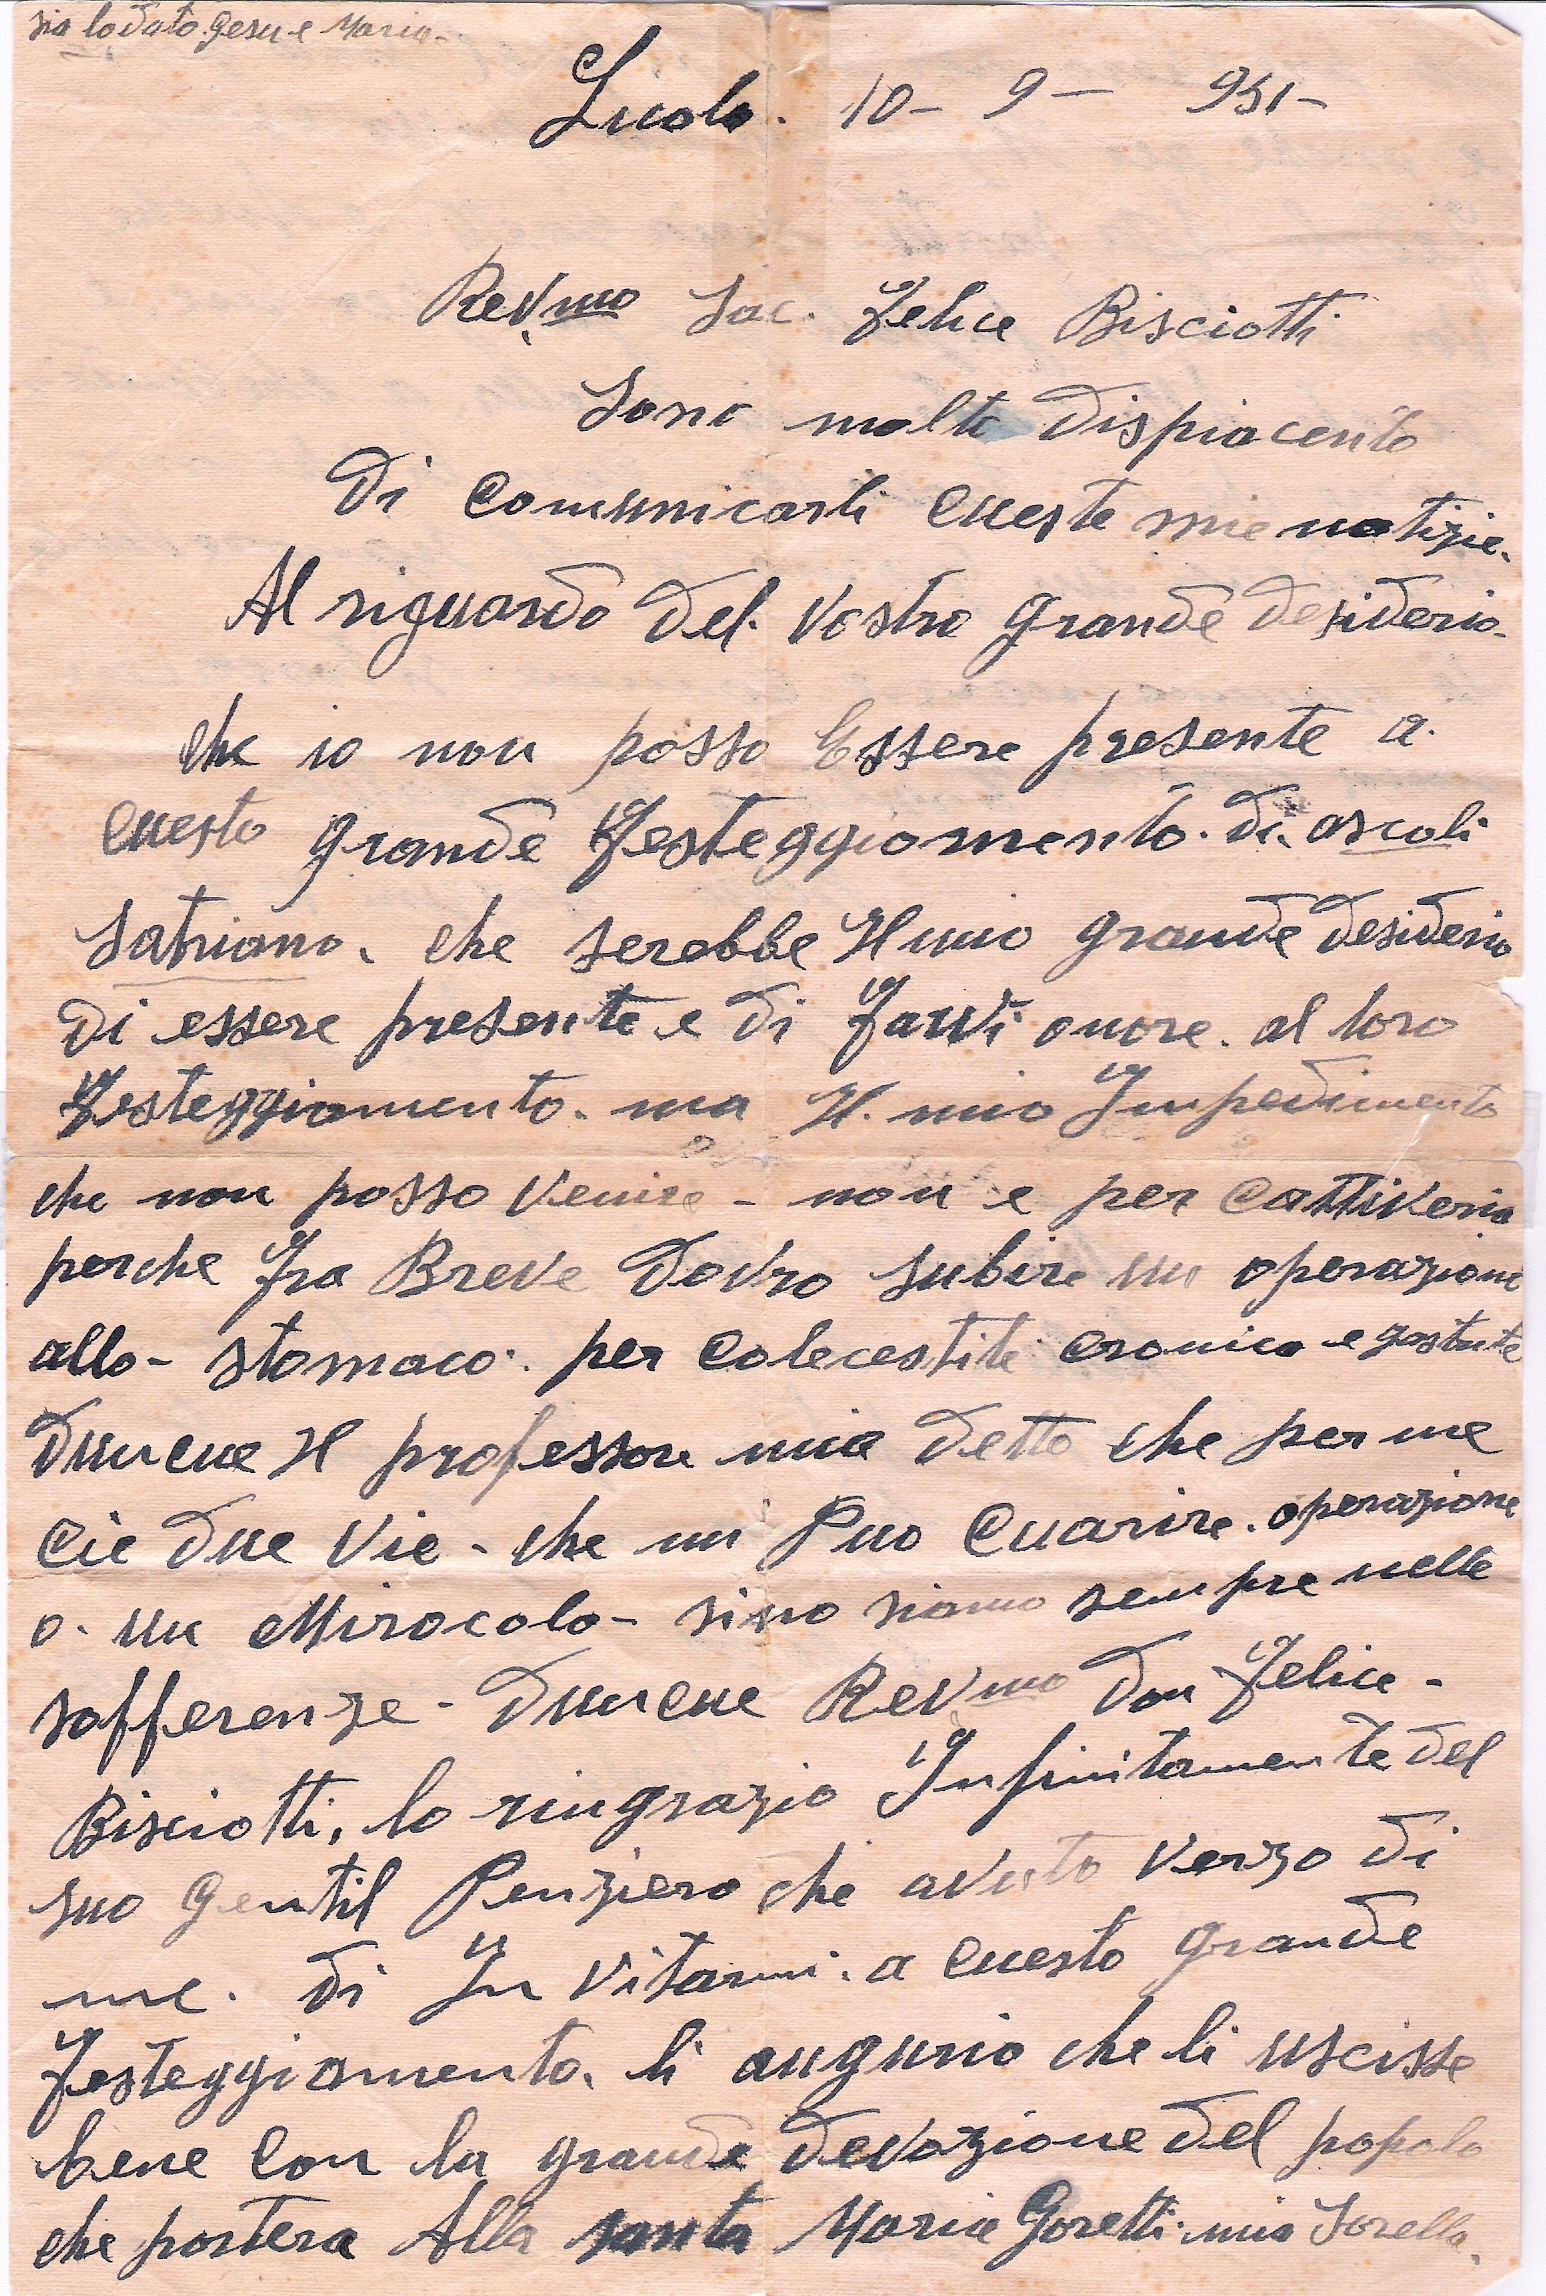 sia lodato Gesu e Maria-
10- 9- 951-
Rev.mo Sac. Felice Bisciotti
Sono molto dispiacente
di Comunicarli cueste mie notizie.
Al riguardo del. vostro grande desiderio-
che io non posso Essere presente a.
cuesto grande Festeggiamento. di. ascoli
Satriano. che serebbe Il mio grande desiderio
di essere presente e di farvi onore. al loro
Festeggiamento. ma Il. mio Impedimento
che non posso venire - non e per cattiveria
perche fra Breve dovro subire un operazione
allo- stomaco. per colecestite cronica e
duncue Il professore mia detto che per me
cie due vie - che mi Puo cuarire. operazione
o. un Mirocolo- sino siamo sempre nelle
sofferenze - duncue Revmo don Felice -
Bisciotti, lo ringrazio Infinitamente del
suo gentil Penziero che avuto verzo di
me. di In vitarmi. a cuesto grande
Festeggiamento. li augurio che li uscisse
bene con la grande devozione del popolo
che portera Alla santa Maria Goretti. mia Sorella.